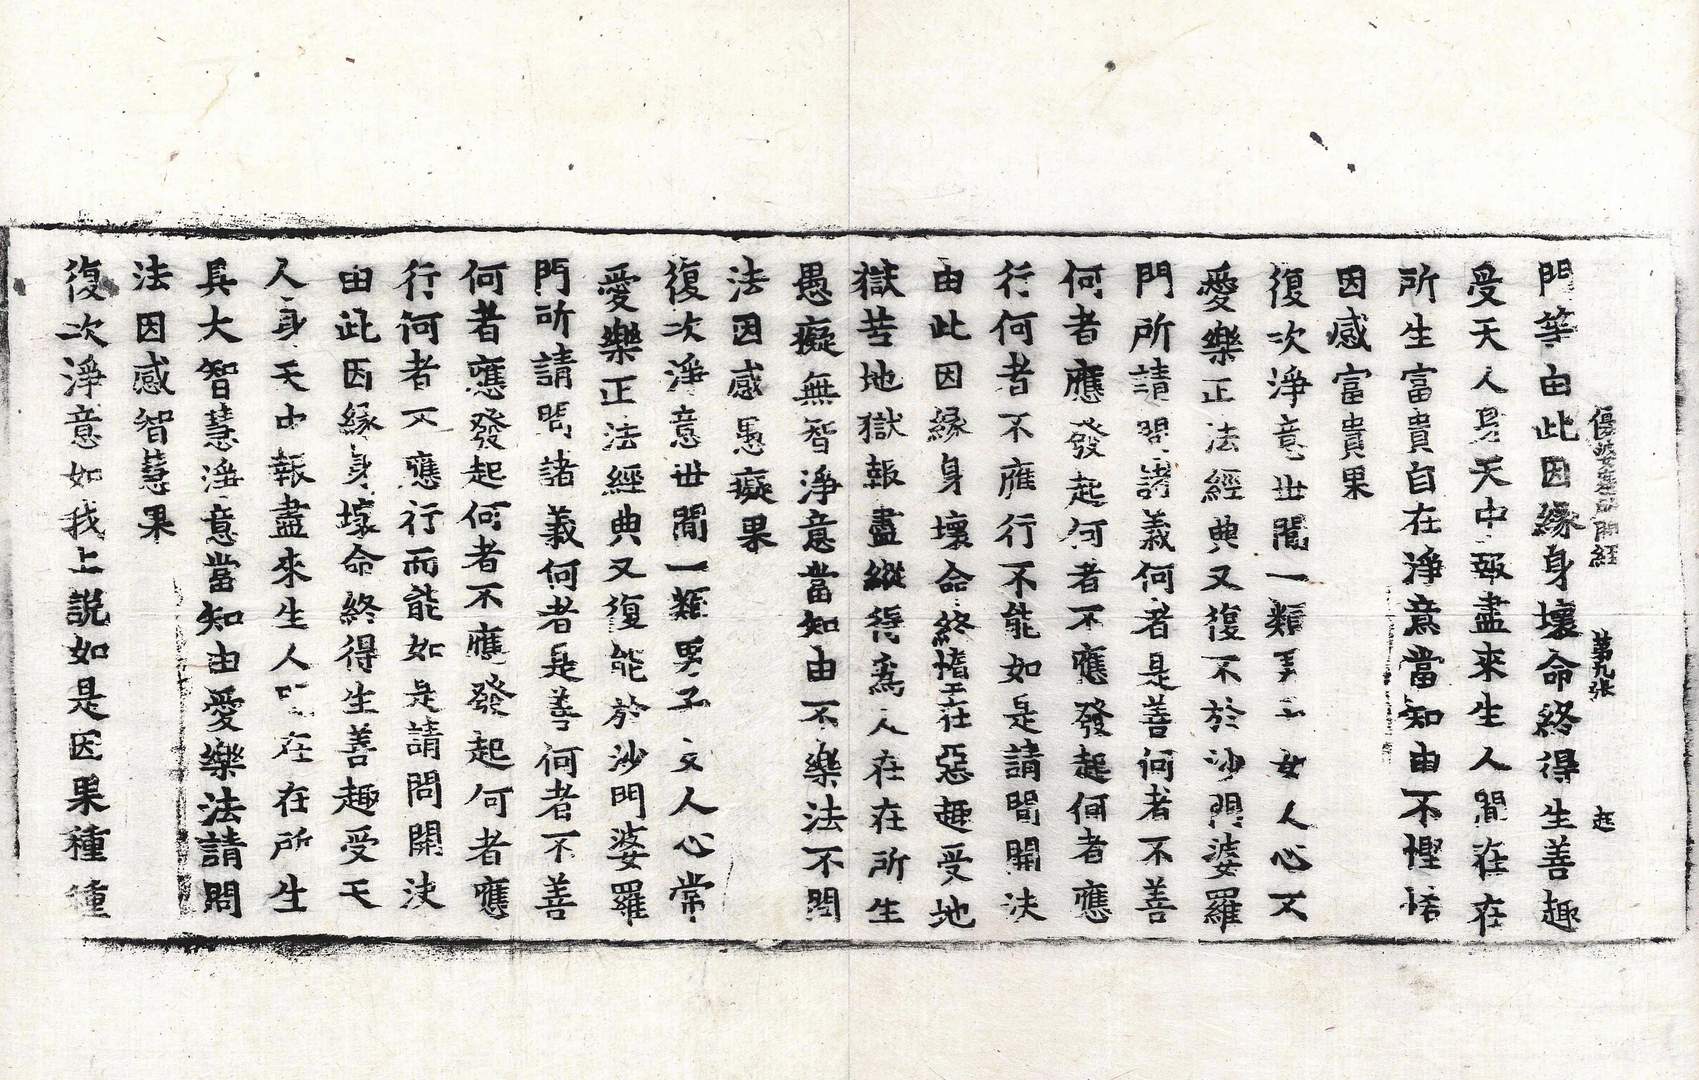 優婆塞所問經 第九張 起
門等由此因緣身壞命終得生善趣
受天人身天中報盡來生人間在在
所生富貴自在淨意當知由不慳悋
因感富貴果
復次淨意世間一類男子女人心不
愛樂正法經典又復不於沙門婆羅
門所請問諸義何者是善何者不善
何者應發起何者不應發起何者應
行何者不應行不能如是請問開決
由此因緣身壞命終墮在惡趣受地
獄苦地獄報盡縱得為人在在所生
愚癡無智淨意當知由不樂法不問
法因感愚癡果
復次淨意世間一類男子女人心常
愛樂正法經典又復能於沙門婆羅
門所請問諸義何者是善何者不善
何者應發起何者不應發起何者應
行何者不應行而能如是請問開決
由此因緣身壞命終得生善趣受天
人身天中報盡來生人中在在所生
具大智慧淨意當知由愛樂法請問
法因感智慧果
復次淨意如我上說如是因果種種